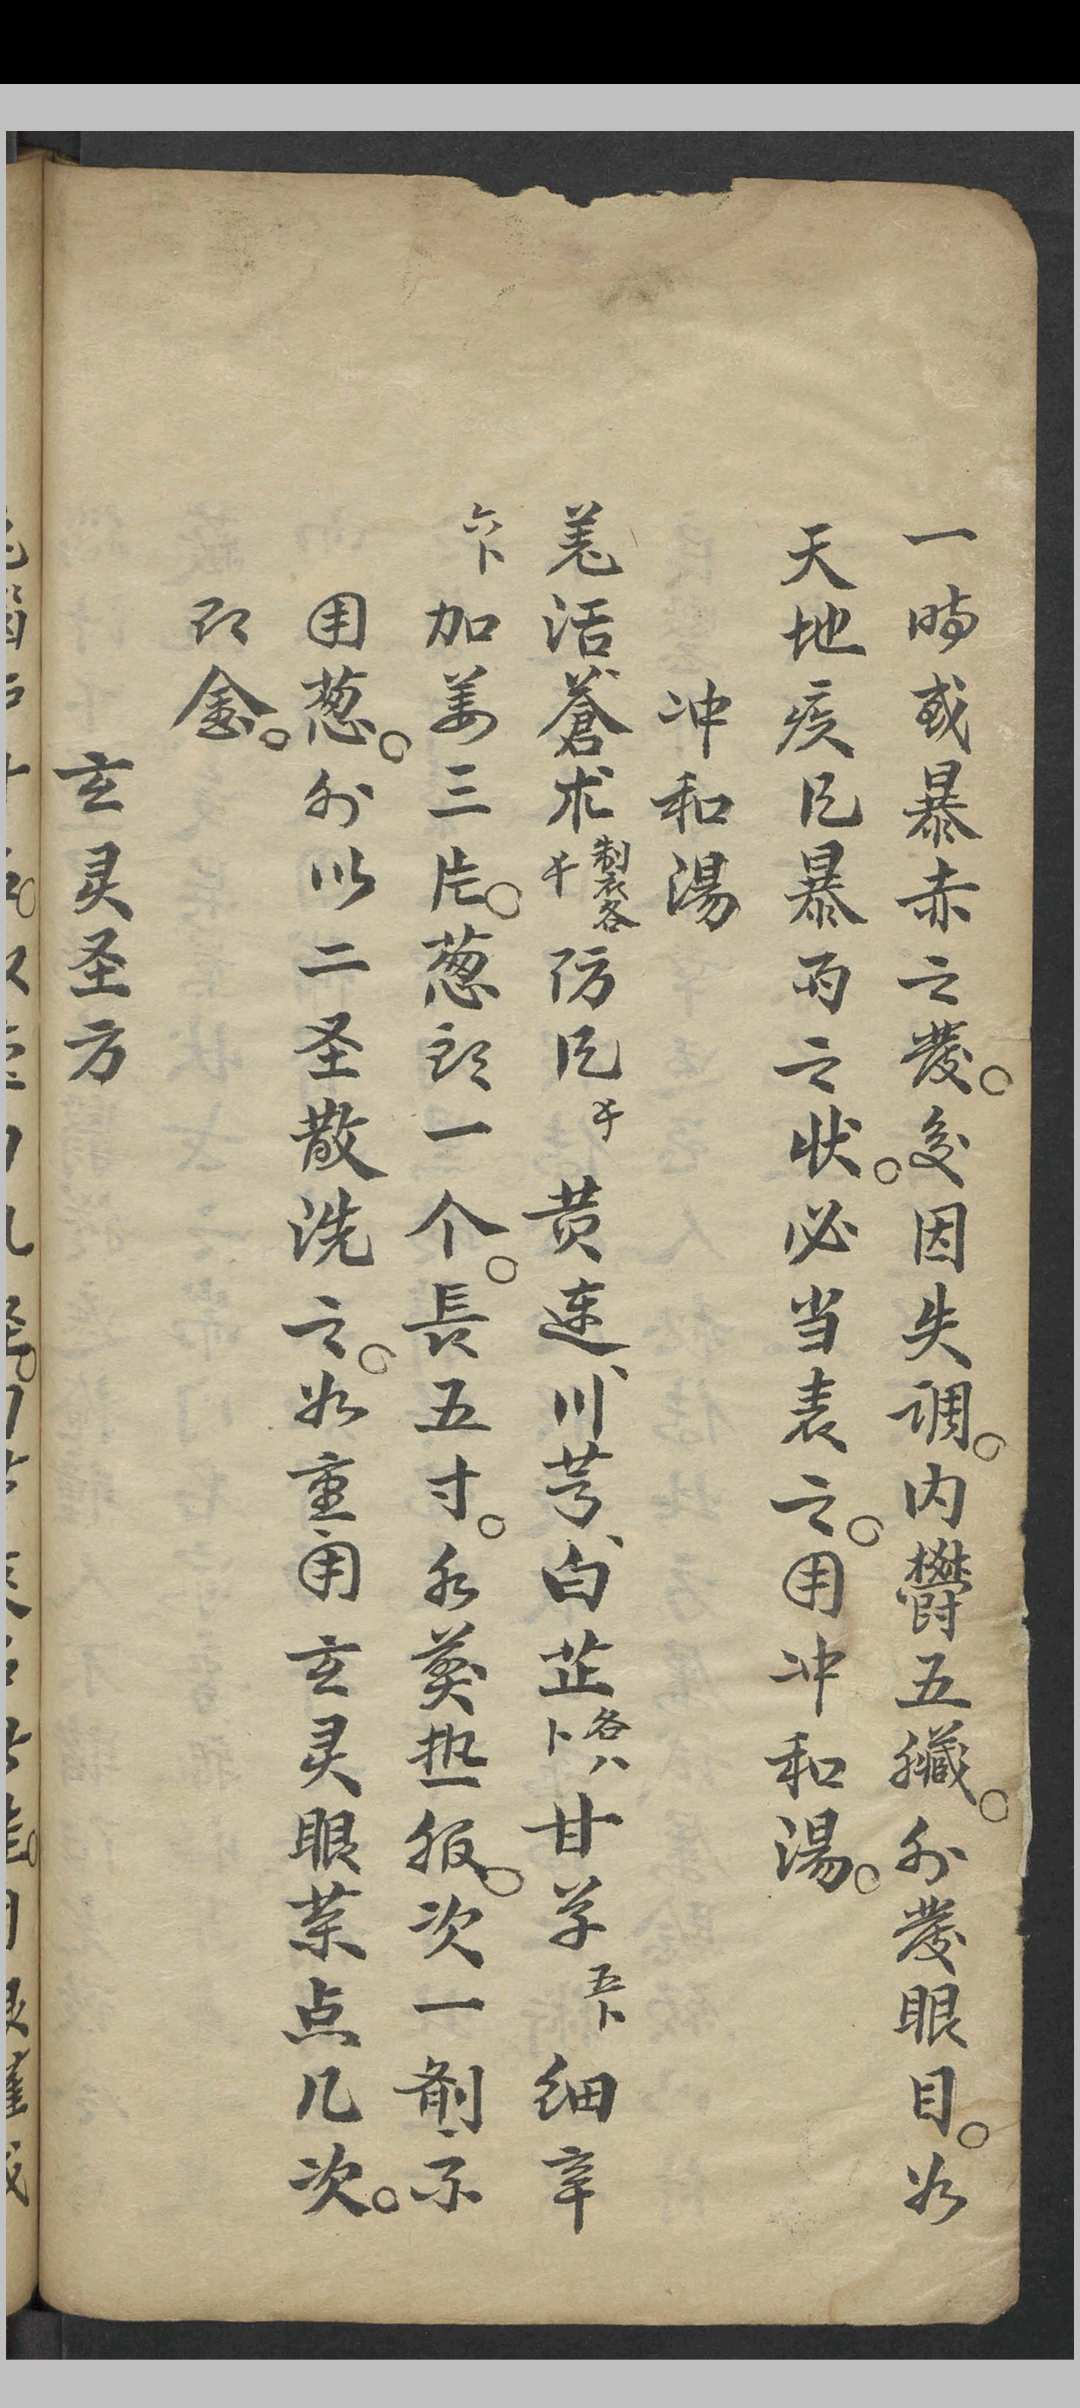 一時或暴赤之發。多因失调。内鬱五臟。外發眼目。如
天地疾风暴雨之状。必当表之。用冲和湯。
冲和湯
羌活、蒼术製衣各千 防风千 黄连、川芎、白芷各八卜 甘草五卜 细辛
六卜 加姜三片。葱头一个。長五寸。水煎热服。次一剤不
用葱。外以二圣散洗之。如重用玄灵眼茶点几次。
即愈。
玄灵圣方